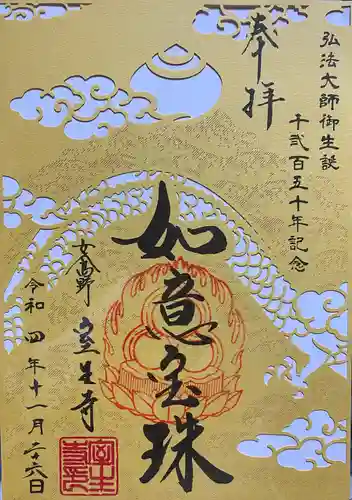 弘法大師御生誕
千弐百五十年記念
奉拝
如意宝珠
女人高野
室生寺
令和四年十一月二十六日